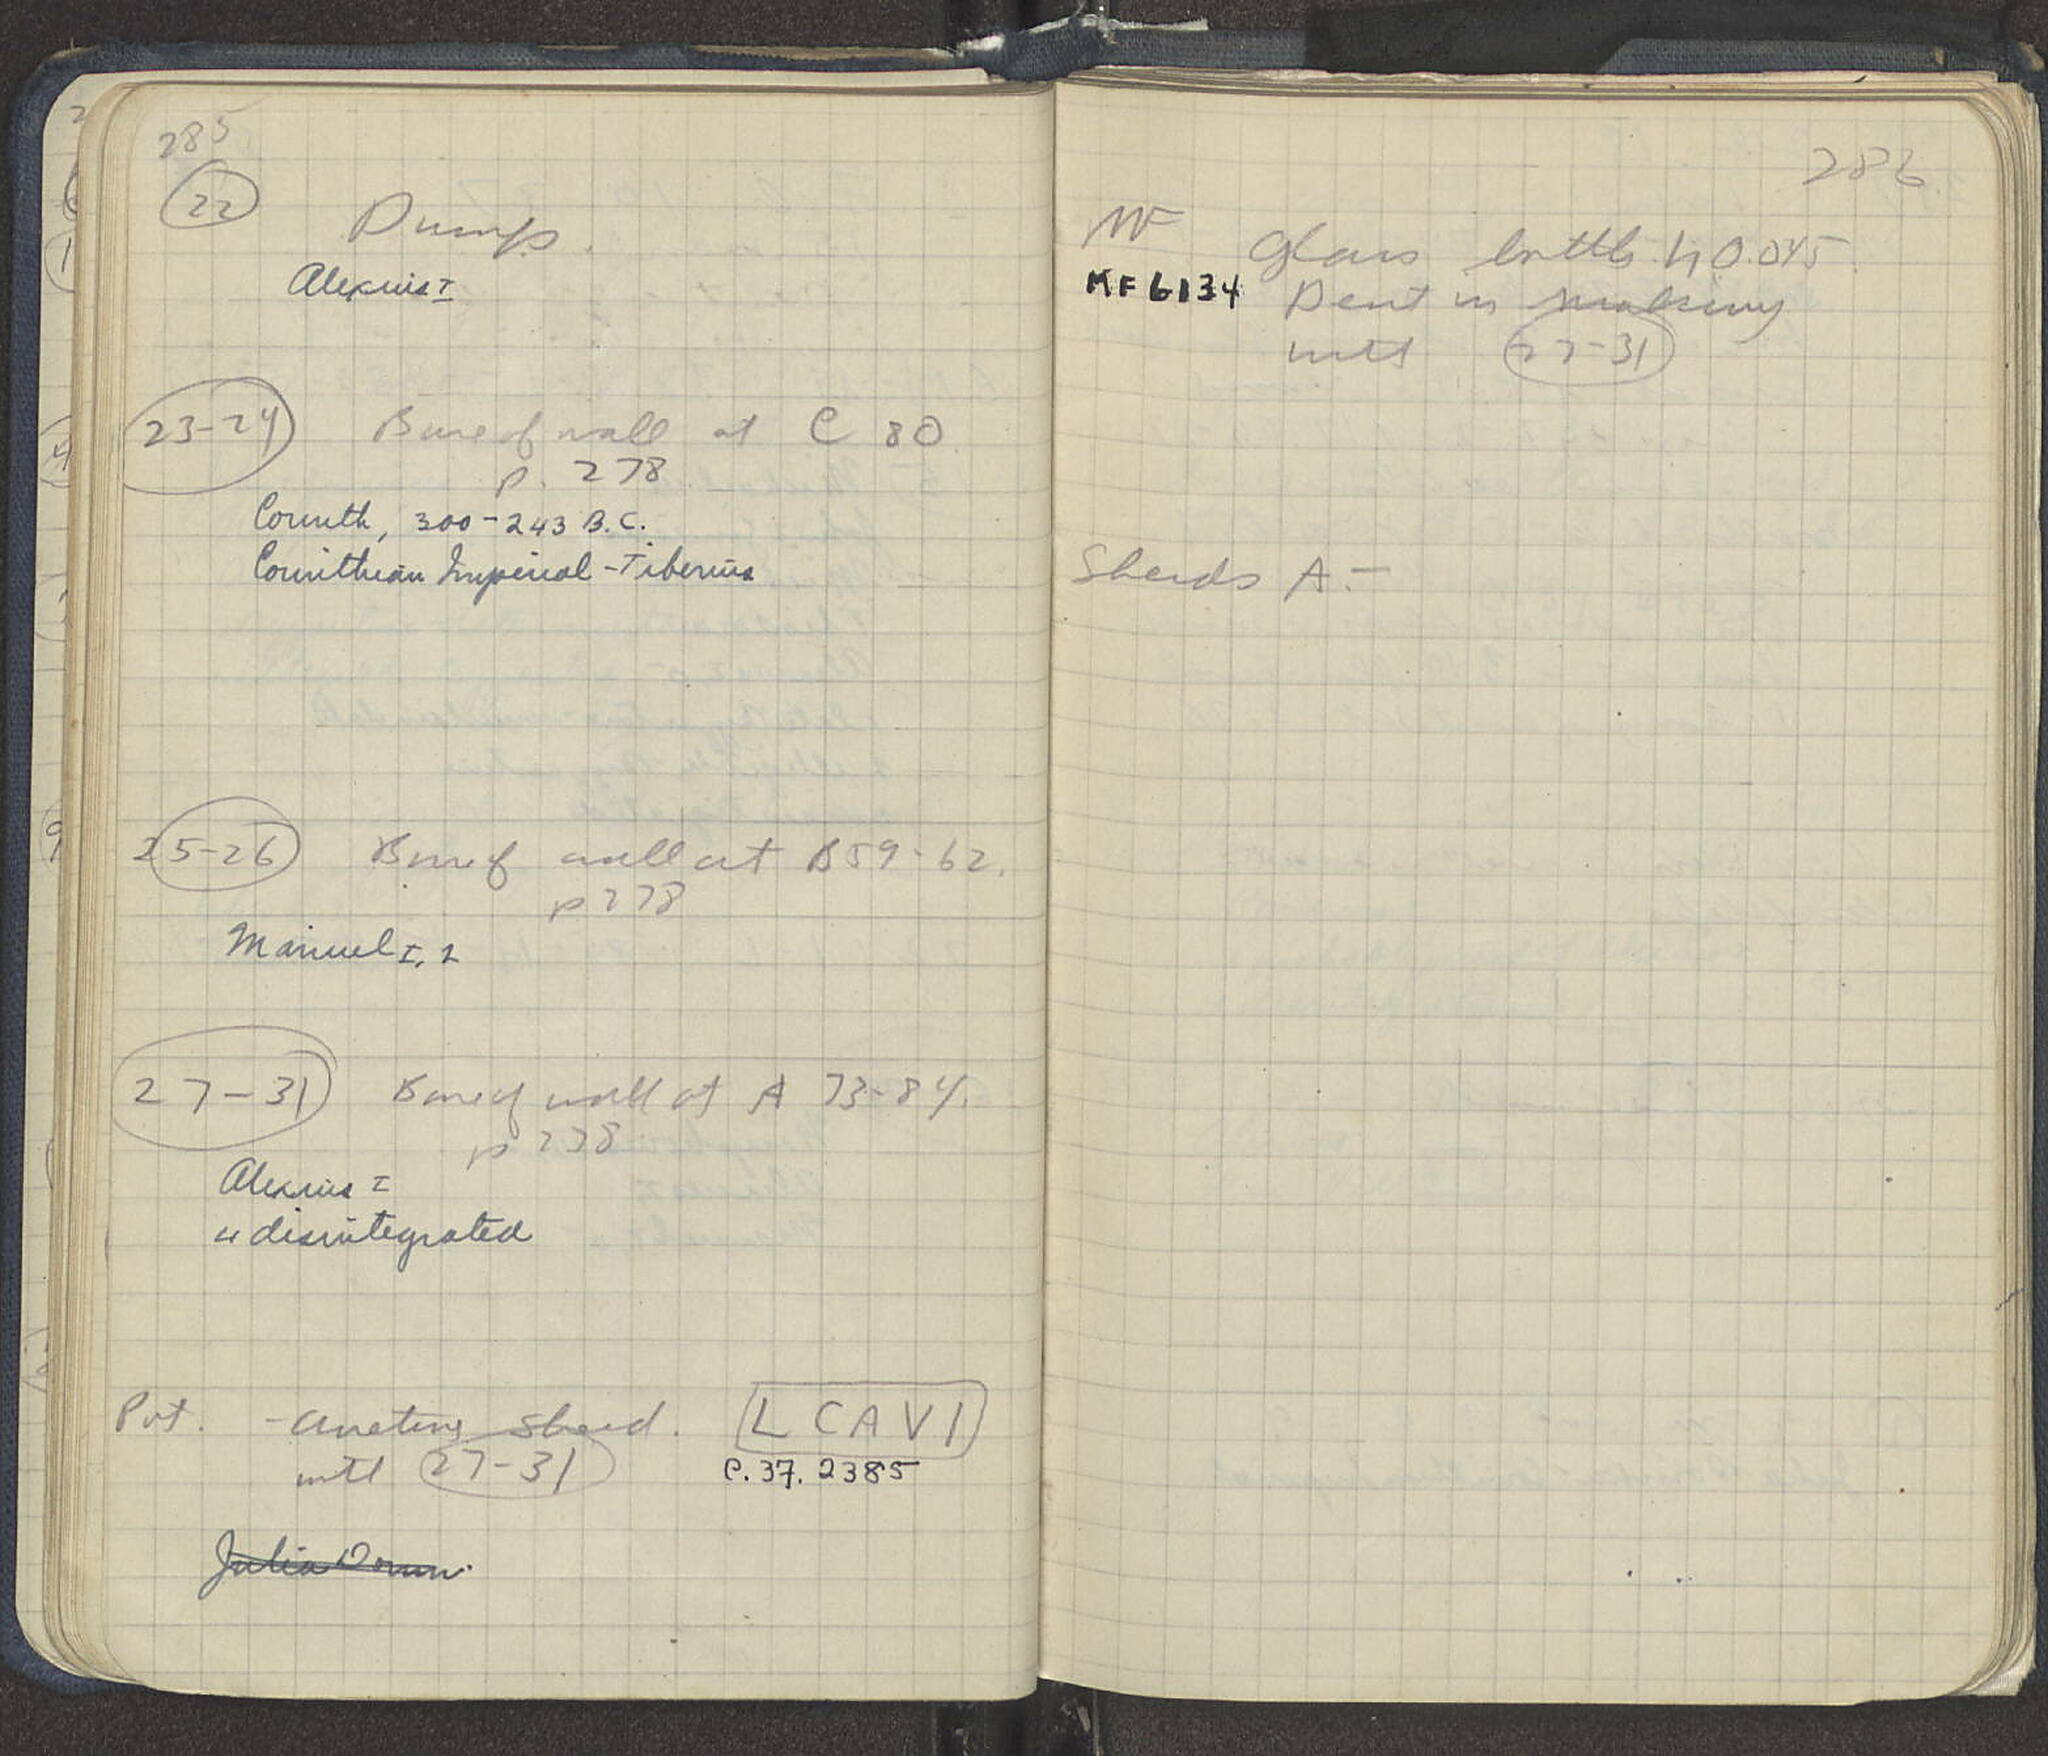 285
22
Dump.
Alexius I
23-24 Base of wall at C 80
p. 278
Corinth, 300-243 B.C.
Corinthian Imperial - Tiberius
25-26 Base of wall at B 59-62.
p 278
Manuel I, 2
27-31 Base of wall at A 73-84.
p 278
Alexius I
" disintegrated
Pot. - Arretine sherd. L CAVI
with 27-31 C.37.2385
Julia Domn.
286
MF Glass bottle. h 0.045
MF 6134 Dent in making
with 27-31
Sherds A.-